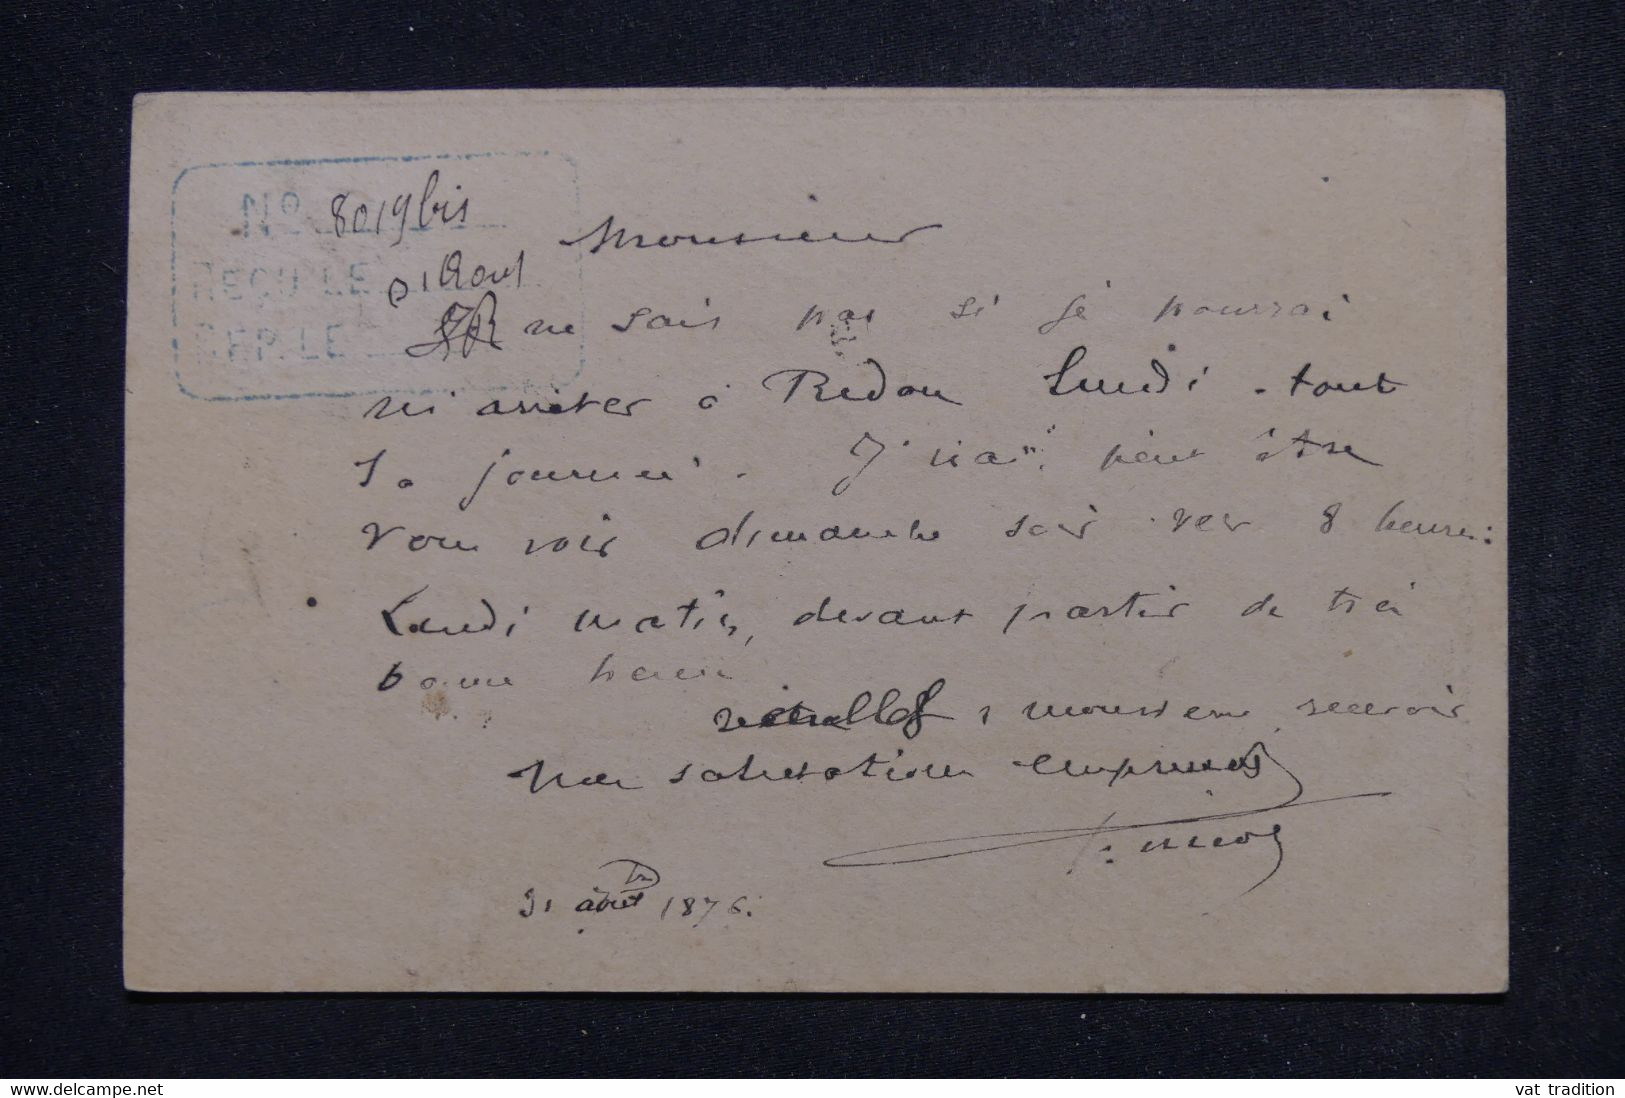 No 8019 bis
RECU LE 31 Aout
REP. LE
Monsieur
ne sais pas si je pourrai
m'arrêter à Redon Lundi tout
la journée. J'irai peut être
vous voir dimanche soir ver 8 heures.
Lundi matin, devant partir de très
bonne heure
Veuillez, monsieur, recevoir
mes salutations empressées
31 août 1876.
delcampe.net
vat tradition